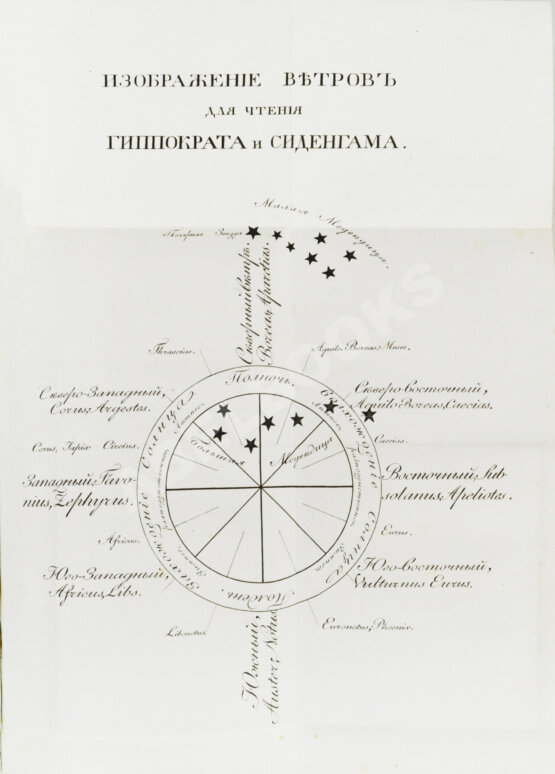 ИЗОБРАЖЕНІЕ ВѢТРОВЪ
ДЛЯ ЧТЕНІЯ
ГИППОКРАТА и СИДЕНГАМА.
Малая Медвѣдица.
Полярная Звѣзда.
Сѣверный вѣтръ.
Boreas, Aparctias.
Thrascias.
Aquilo, Boreas, Meses.
Полночь.
Сѣверо-Западный,
Corus, Argestes.
Сѣверо-Восточный,
Aquilo-Boreas, Caecias.
Захожденіе Солнца
Восхожденіе Солнца
Лѣтнее.
Лѣтнее.
Большая Медвѣдица
Corus, Iapix Circius.
Caecias.
Западный, Favo-
nius, Zephyrus.
Восточный, Sub-
solanus, Apeliotes.
равноденственное.
равноденственное.
Africus.
Eurus.
Зимнее.
Зимнее.
Юго-Западный,
Africus, Libs.
Юго-Восточный,
Vulturnus Eurus.
Полдень.
Libonotus.
Euronotus, Phoenix.
Южный,
Auster, Notus